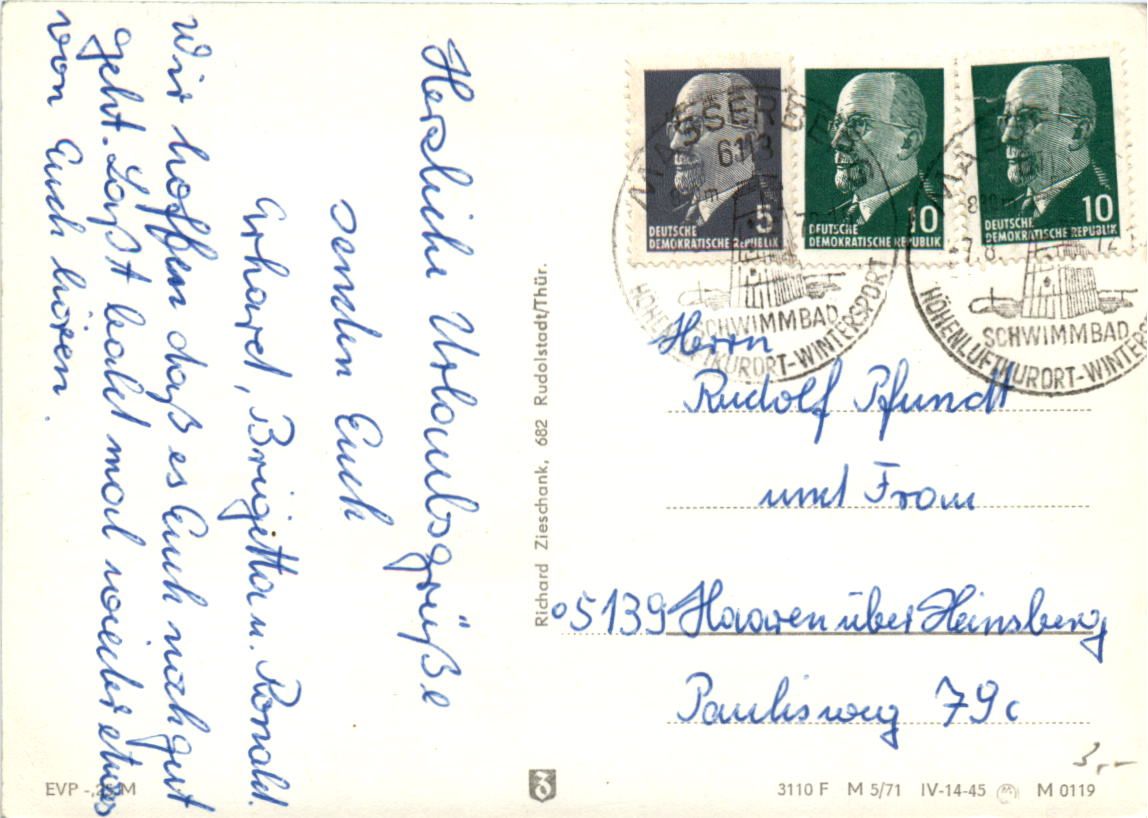 Herzliche Urlaubsgrüße
senden Euch
Erhard, Brigitta u. Ronald.
Wir hoffen daß es Euch noch gut
geht. Laßt bald mal wieder etwas
von Euch hören.
Richard Zieschank, 682 Rudolstadt/Thür.
5
DEUTSCHE
DEMOKRATISCHE REPUBLIK
10
DEUTSCHE
DEMOKRATISCHE REPUBLIK
10
DEUTSCHE
DEMOKRATISCHE REPUBLIK
MASSERBERG
6113
SCHWIMMBAD
HÖHENLUFTKURORT-WINTERSPORT
SCHWIMMBAD
HÖHENLUFTKURORT-WINTERSPORT
Herrn
Rudolf Pfundt
und Frau
05139 Haaren über Heinsberg
Paulisweg 79c
3,-
EVP
M
3110 F M 5/71 IV-14-45 M 0119